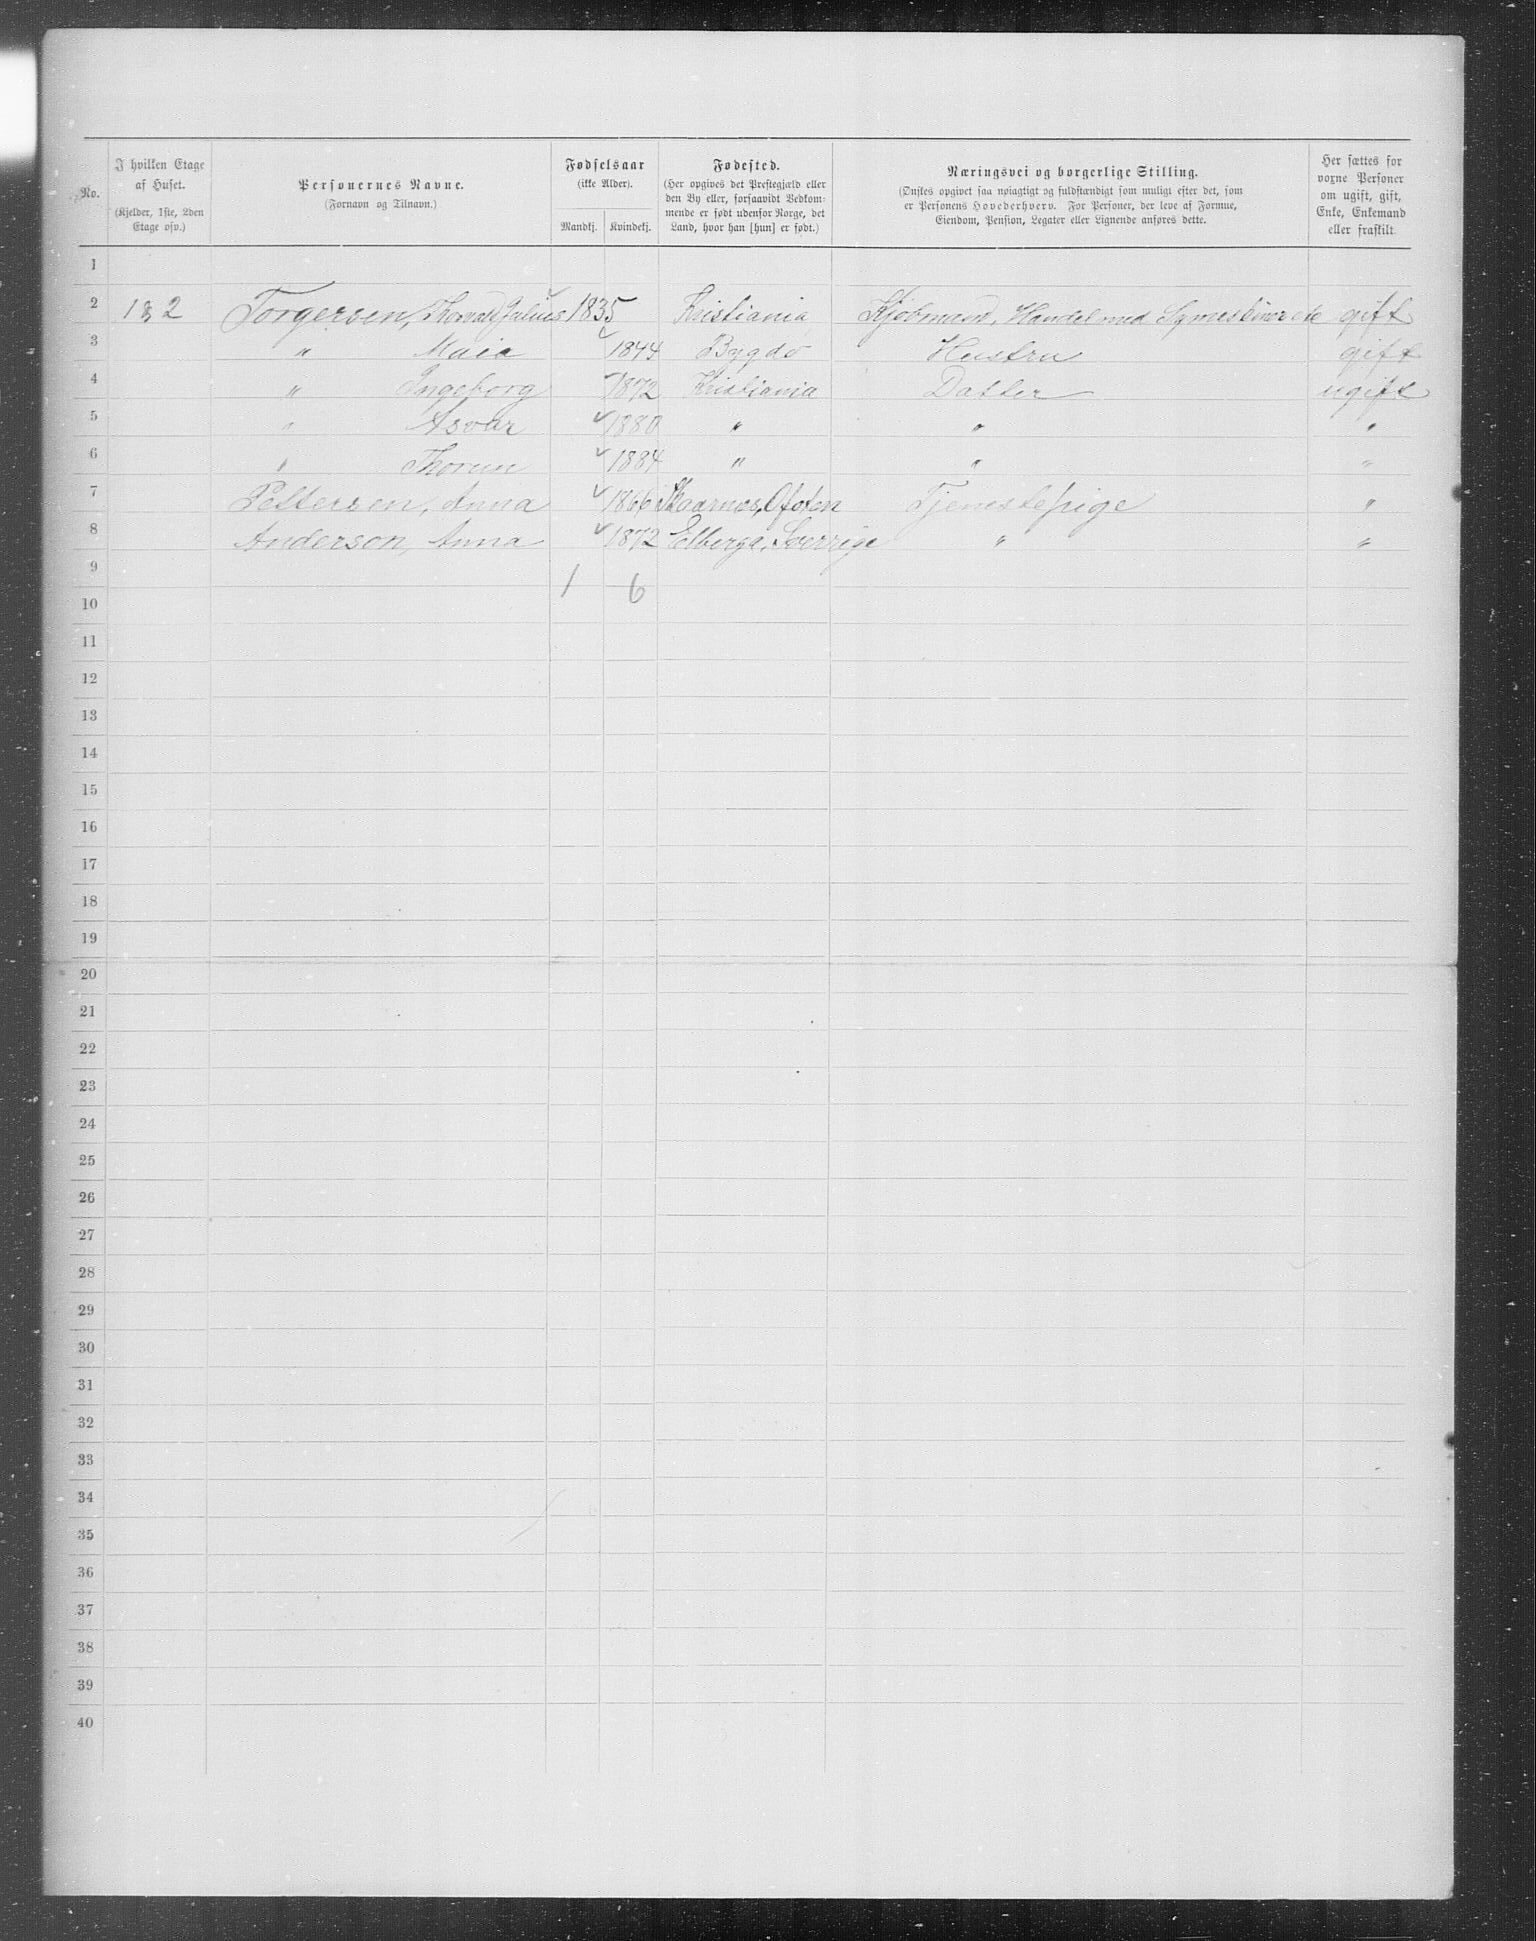 No.
I hvilken Etage
af Huset.
(Kjelder, 1ste, 2den
Etage osv.)
Personernes Navne.
(Fornavn og Tilnavn.)
Fødselsaar
(ikke Alder).
Mandkj. Kvindekj.
Fødested.
(Her opgives det Prestegjæld eller
den By eller, forsaavidt Vedkom-
mende er født udenfor Norge, det
Land, hvor han [hun] er født.)
Næringsvei og borgerlige Stilling.
(Ønskes opgivet saa nøiagtigt og fuldstændigt som muligt efter det, som
er Personens Hovederhverv. For Personer, der leve af Formue,
Eiendom, Pension, Legater eller Lignende anføres dette.
Her sættes for
voxne Personer
om ugift, gift,
Enke, Enkemand
eller fraskilt.
1
2 1 & 2 Torgersen, Thorvald Julius 1835 Kristiania Kjøbmand, Handel med gift
3 " Maia 1844 Bygdø Hustru gift
4 " Ingeborg 1872 Kristiania Datter ugift
5 " Asvør 1880 " " "
6 " Thorun 1884 " " "
7 Pettersen, Anna 1866 Skaarnes, Ofoten Tjenestepige "
8 Anderson, Anna 1872 Elberga, Sverrige " "
9 1 6
10
11
12
13
14
15
16
17
18
19
20
21
22
23
24
25
26
27
28
29
30
31
32
33
34
35
36
37
38
39
40